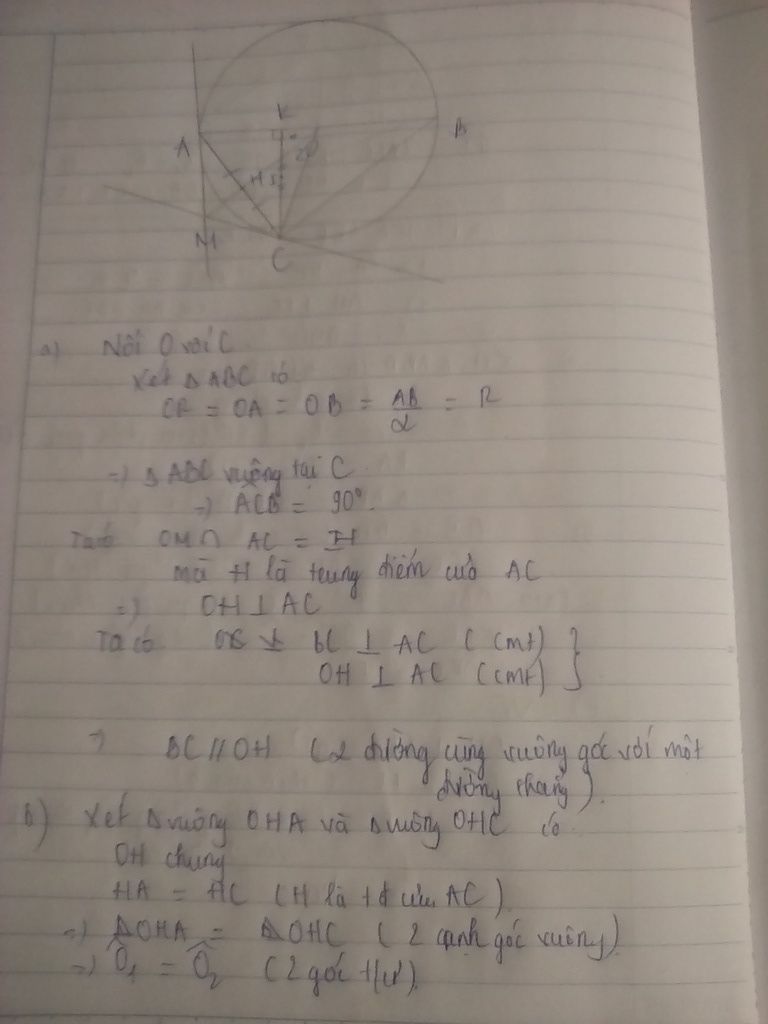 K
A
B
H
M
C
a) Nối O với C
Xét Δ ABC có
= OA = OB = AB/2 = R
=> Δ ABC vuông tại C
=> ACB = 90°.
Ta có OM ∩ AC = H
mà H là trung điểm của AC
=> OH ⊥ AC
Ta có BC ⊥ AC (cmt) }
OH ⊥ AC (cmt) }
=> BC // OH (2 đường cùng vuông góc với một
đường thẳng).
b) Xét Δ vuông OHA và Δ vuông OHC có
OH chung
HA = HC (H là tđ của AC)
=> Δ OHA = Δ OHC (2 cạnh góc vuông)
=> Ô1 = Ô2 (2 góc t/ư)